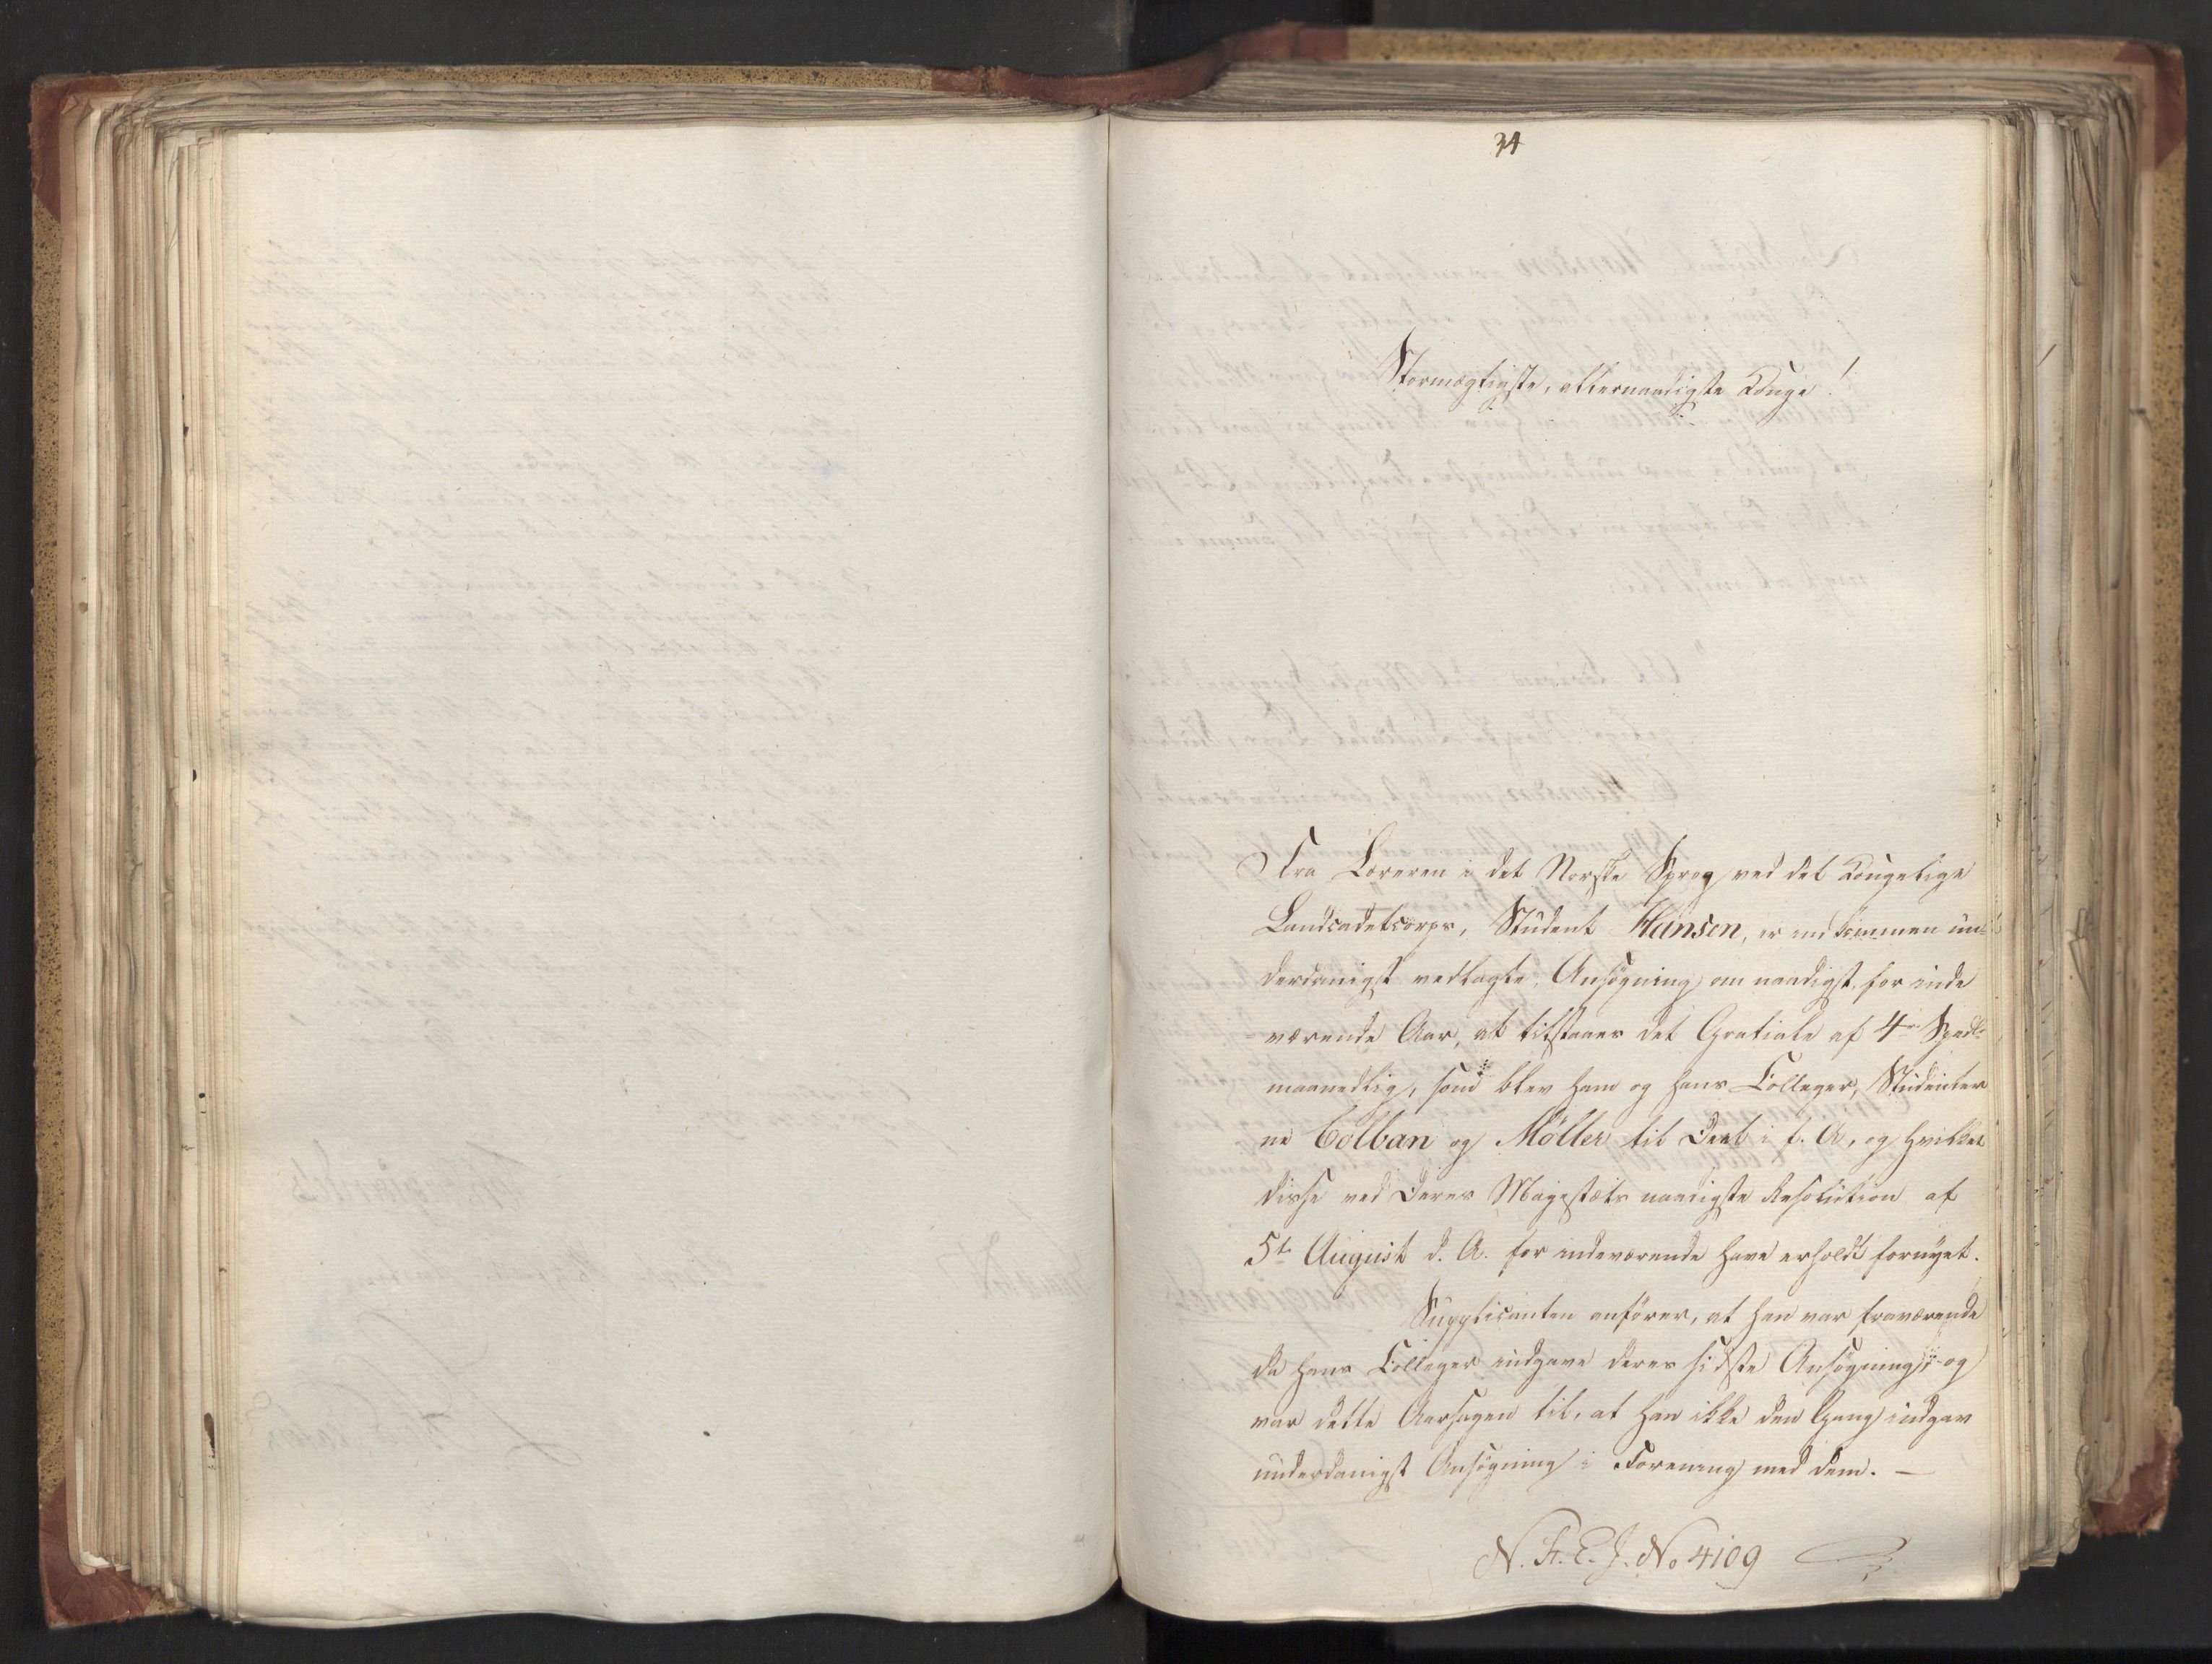 34
Stormægtigste, allernaadigste Konge!
Fra Læreren i det Norske Sprog ved det Kongelige
Landcadetcorps, Student Hansen, er indkommen un-
derdanigst vedlagte Ansøgning om naadigst for inde
værende Aar, at tilstaaes det Gratiale af 4re Spdlr
maanedlig, som blev ham og hans Colleger, Studenter
ne Colban og Møller til Deel i f. A., og hvilket
disse ved Deres Majestæts naadigste Resolution af
5te August d. A. for indeværende have erholdt fornyet.
Supplicanten anfører, at han var fraværende
da hans Colleger indgave deres sidste Ansøgning, og
var dette Aarsagen til, at han ikke den Gang indgav
underdanigst Ansøgning i Forening med dem. —
N. A. E. J. No 4109